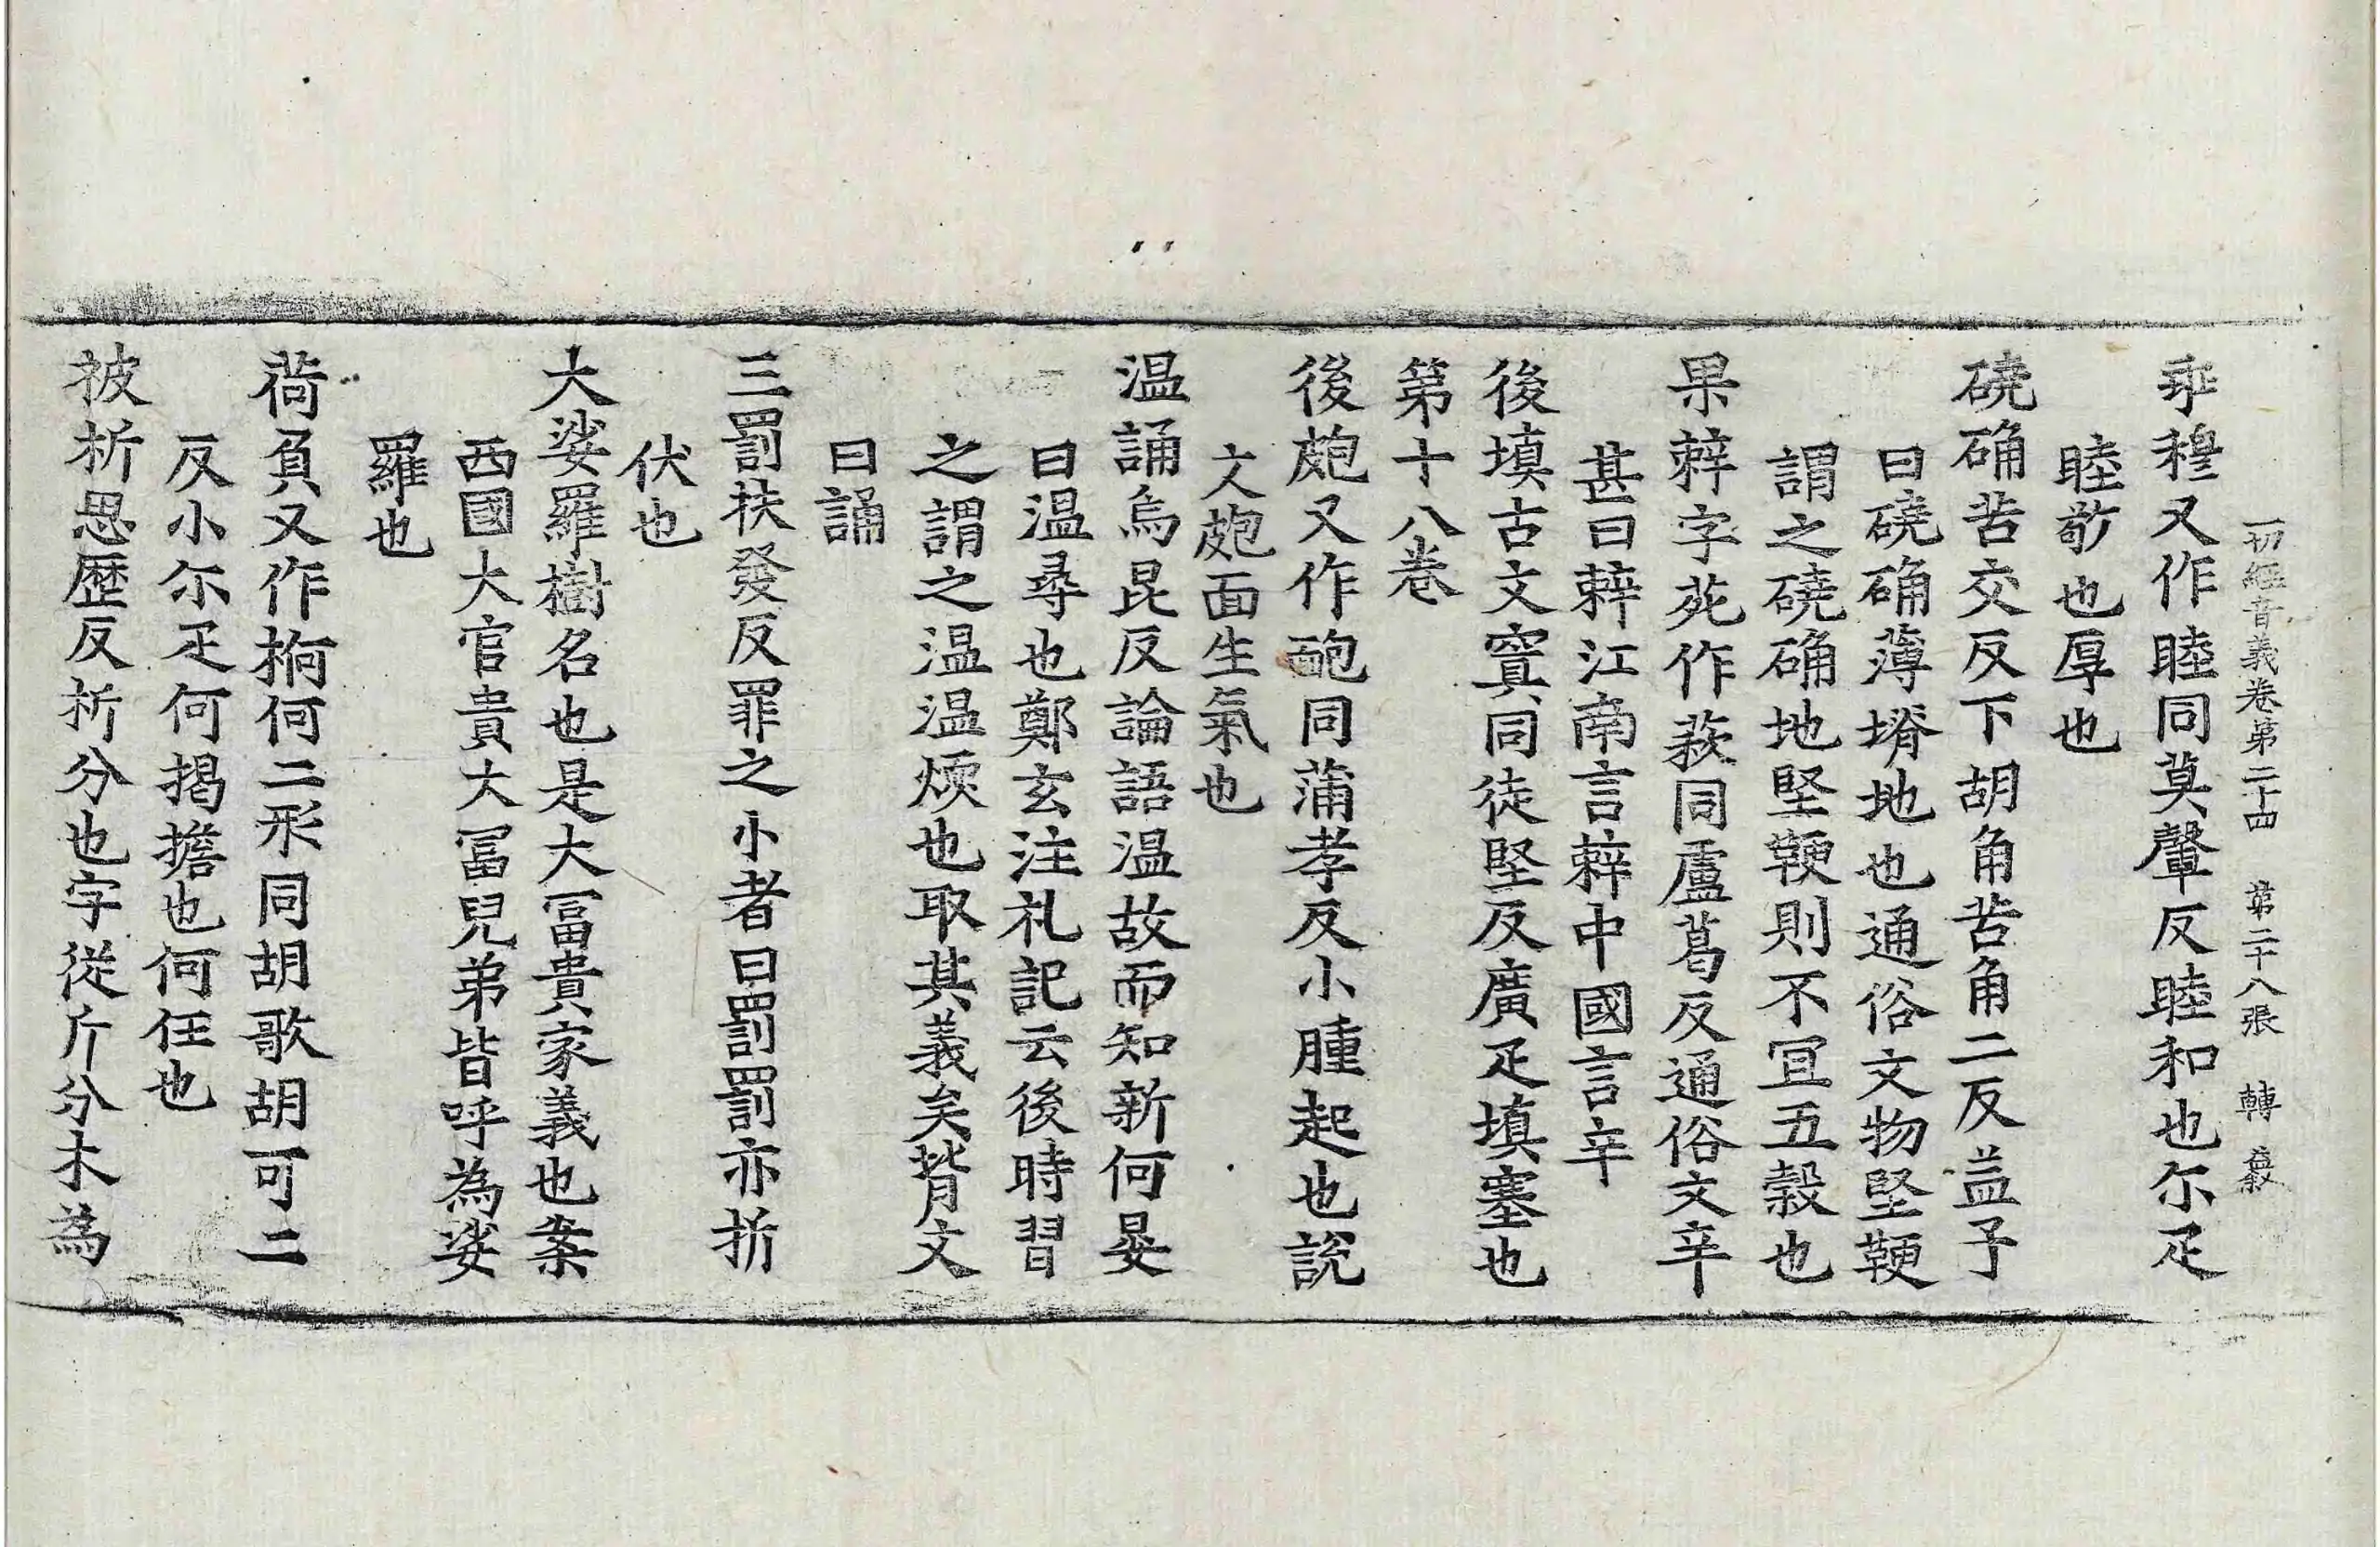 一切經音義卷第二十四 第二十八張 轉 㲄
乖穆又作睦同莫鞏反睦和也尒疋
睦敬也厚也
磽确苦交反下胡角苦角二反孟子
曰磽确薄塉地也通俗文物堅鞕
謂之磽确地堅鞕則不宜五穀也
果𢑥字苑作䔾同盧葛反通俗文辛
甚曰𢑥江南言𢑥中國言辛
後填古文窴同徒堅反廣疋填塞也
第十八卷
後皰又作䶌同蒲孝反小腫起也說
文皰面生氣也
温誦烏昆反論語温故而知新何晏
曰温尋也鄭玄注礼記云後時習
之謂之温温煗也取其義矣背文
曰誦
三罰扶發反罪之小者曰罰罰亦折
伏也
大娑羅樹名也是大冨貴家義也案
西國大官貴大冨兒弟皆呼為娑
羅也
荷負又作抲何二形同胡歌胡可二
反小尒疋何揭擔也何任也
被析思歷反析分也字從斤分木為